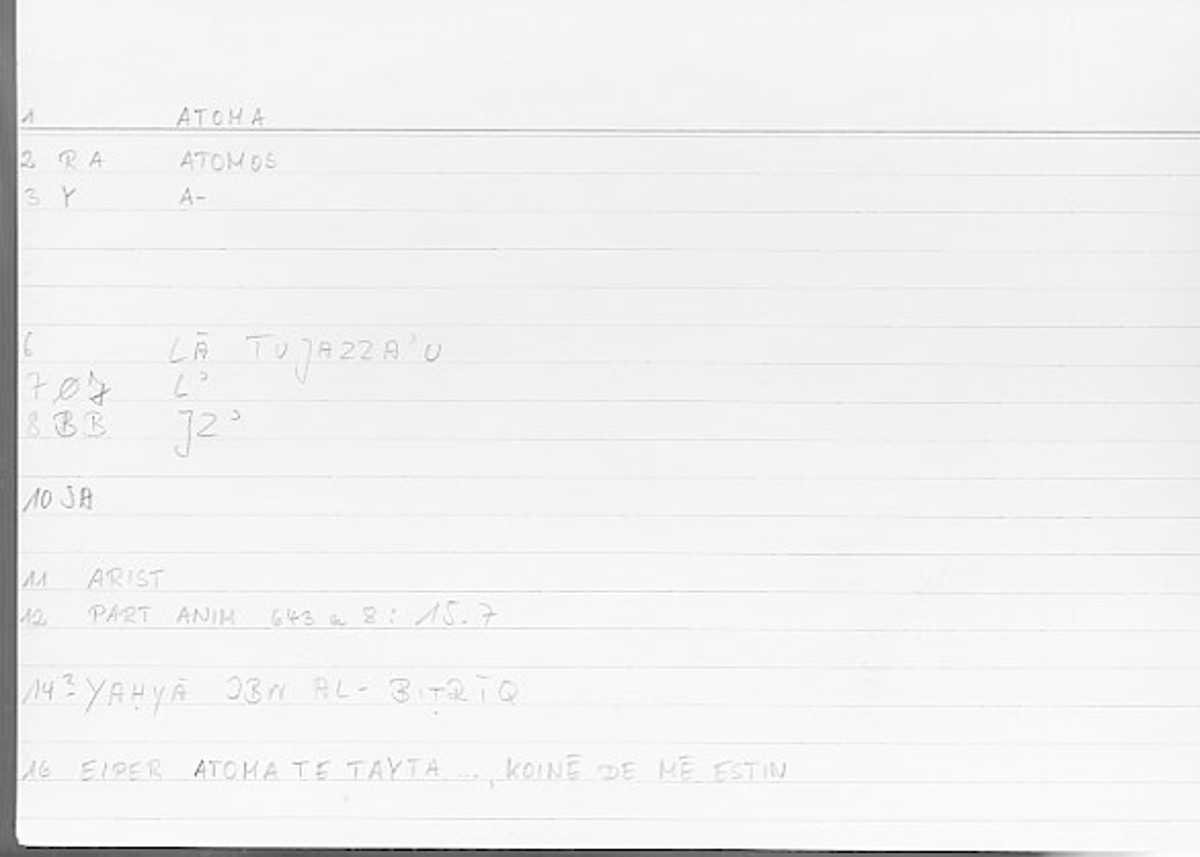 1 ATOMA
2 RA ATOMOS
3 Y A-
6 LĀ TUJAZZA'U
7 ØJ L'
8 BB JZ'
10 JA
11 ARIST
12 PART ANIM 643 a 8: 15.7
14 ? YAḤYĀ IBN AL-BIṬRĪQ
16 EIPER ATOMA TE TAYTA ..., KOINĒ DE MĒ ESTIN